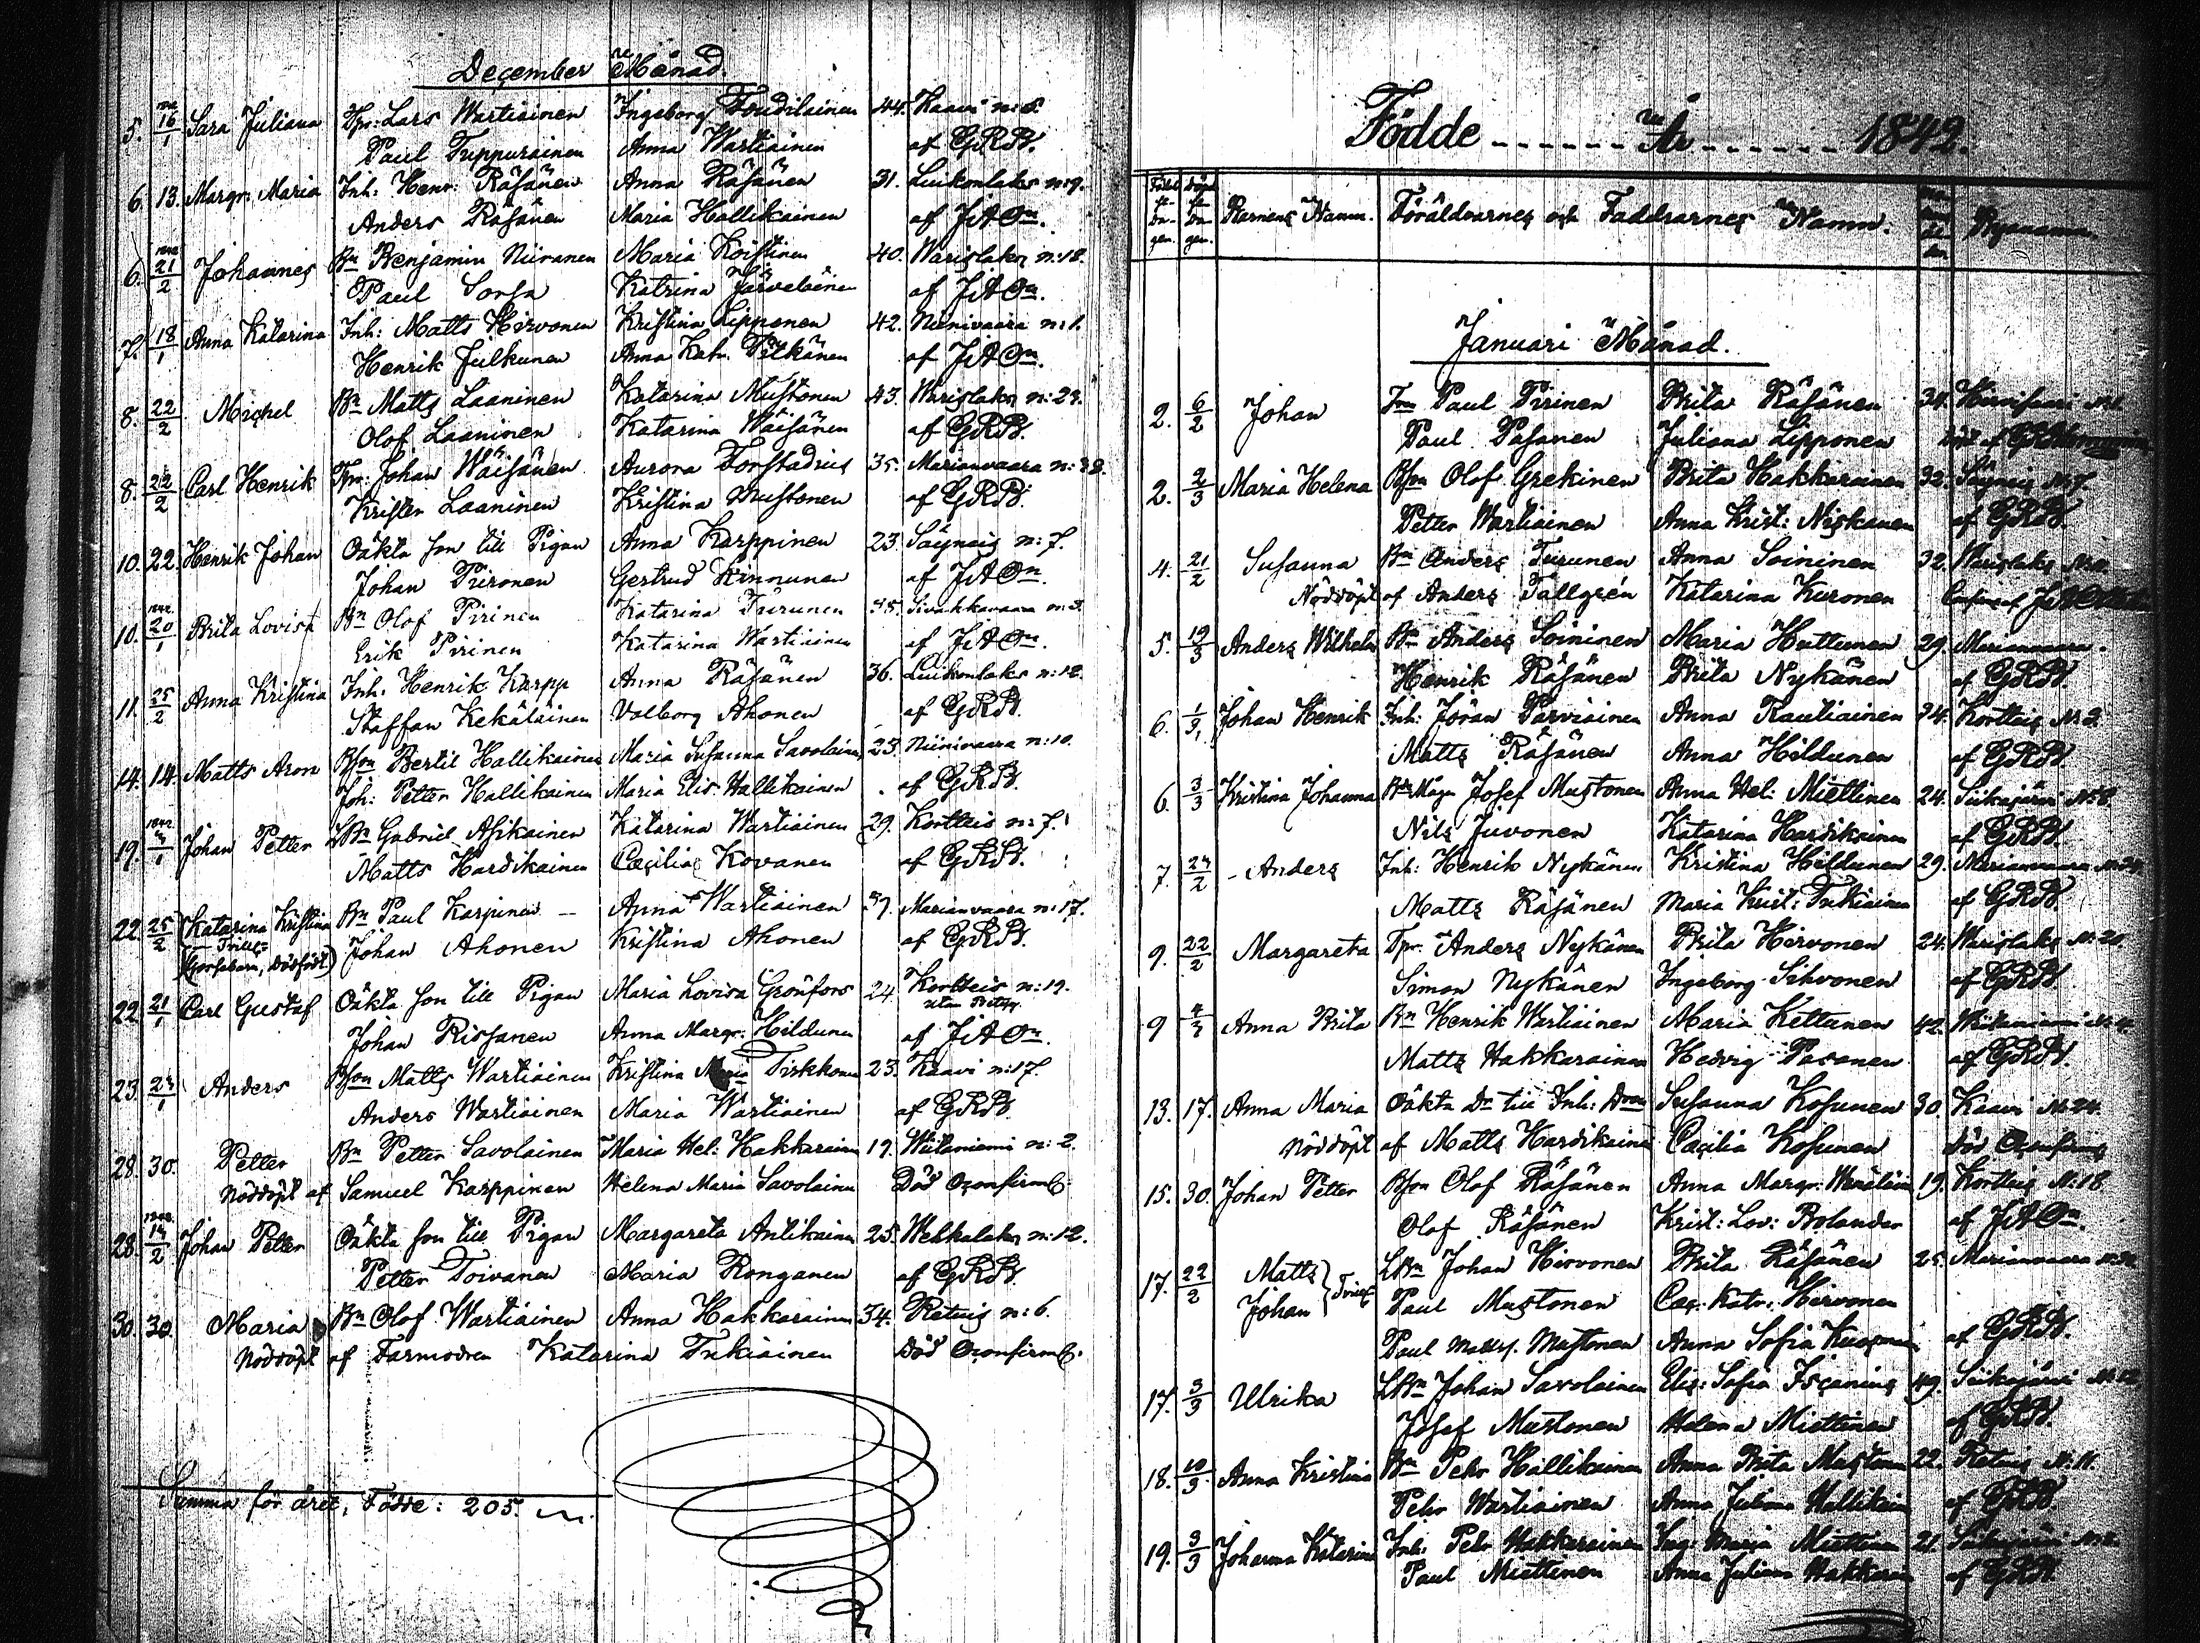 December Månad.
5. 1842 16/1 Sara Juliana Tpr: Lars Wartiainen Ingeborg Toudilainen 44. Kaavi n: 5.
Paul Tuppurainen Anna Wartiainen af GRB.
6. 13. Margr: Maria Inh: Henr: Räsänen Anna Räsänen 31. Luikonlaks n: 9.
Anders Räsänen Maria Hallikainen af JAOn.
6. 1842 21/2 Johannes Bn Benjamin Niiranen Maria Koistinen 40. Warislaks n: 18.
Paul Sorsa Katrina Järveläinen af JAOn.
7. 18/1 Anna Katarina Inh: Matts Hirvonen Kristina Lipponen 42. Niinivaara n: 1.
Henrik Julkunen Anna Katr: Pitkänen af JAOn.
8. 22/2 Michel Bn Matts Laaninen Katarina Mustonen 43. Warislaks n: 23.
Olof Laaninen Katarina Wäisänen af GRB.
8. 22/2 Carl Henrik Tpr: Johan Wäisänen Aurora Forstadius 35. Marianvaara n:
Krister Laaninen Kristina Mustonen af GRB.
10. 22. Henrik Johan Oäkta son till Pigan Anna Karppinen 23. Säyneis n: 7.
Johan Piironen Gertrud Kinnunen af JAOn.
10. 1842 20/1 Brita Lovisa Bn Olof Pirinen Katarina Turunen 35. Sivakkavaara n: 3.
Erik Pirinen Katarina Wartiainen af JAOn.
11. 25/2 Anna Kristina Inh: Henrik Karpp Anna Räsänen 36. Luikonlaks n: 12.
Staffan Kekäläinen Valborg Ahonen af GRB.
14. 14. Matts Aron Bson Bertil Hallikainen Maria Susanna Savolainen 23. Niinivaara n: 10.
Joh: Petter Hallikainen Maria Elis: Hallikainen af GRB.
19. 1842 Johan Petter LBn Gabriel Asikainen Katarina Wartiainen 29. Kortteis n: 7.
Matts Hardikainen Cæcilia Kovanen af GRB.
22. 25/2 Katarina Kristina Bn Paul Karpinen Anna Wartiainen 37. Marianvaara n: 17.
Johan Ahonen Kristina Ahonen af GRB.
(Gossebarn, Dödfödt)
22. 21/1 Carl Gustaf Oäkta son till Pigan Maria Lovisa Grönfors 24. Kortteis n: 19.
Johan Rissanen Anna Margr: Hildunen af JAOn.
23. 24/1 Anders Bson Matts Wartiainen Kristina Maria Tirkkonen 23. Kaavi n: 17.
Anders Wartiainen Maria Wartiainen af GRB.
28. 30. Petter Bn Petter Savolainen Maria Hel: Hakkarainen 19. Wiitaniemi n: 2.
Nöddöpt af Samuel Karppinen Helena Maria Savolainen Död Oconfirm:
28. 1842 14/2 Johan Petter Oäkta son till Pigan Margareta Antikainen 25. Wehkalaks n: 12.
Petter Toivanen Maria Ronganen af GRB.
30. 30. Maria Bn Olof Wartiainen Anna Hakkarainen 34. Retuis n: 6.
Nöddöpt af Farmodren Katarina Tukiainen Död Oconfirm:
Summa för året, Födde: 205.
Födde År 1842.
Barnens Namn. Föräldrarnes och Faddrarnes Namn. Byanamn.
Januari Månad.
2. 6/2 Johan Paul Pirinen Brita Räsänen 34.
Paul Pasanen Juliana Lipponen
2. 2/3 Maria Helena Bson Olof Grekinen Brita Hakkarainen 32. Säyneis N: 7.
Petter Wartiainen Anna Krist: Niskanen af GRB.
4. 21/2 Susanna Bn Anders Turunen Anna Soininen 32. Warislaks
Nöddöpt af Anders Tallgrén Katarina Kuronen
5. 19/3 Anders Wilhelm Bn Anders Soininen Maria Huttunen 29. Marianvaara.
Henrik Räsänen Brita Nykänen af GRB.
6. Johan Henrik Inh: Jöran Parviainen Anna Rautiainen 34. Kortteis N: 3.
Matts Räsänen Anna Hildunen af GRB.
6. 3/3 Kristina Johanna Bn Måg Josef Mustonen Anna Hel: Miettinen 24. Siikajärvi N: 8.
Nils Juvonen Katarina Hardikainen af GRB.
7. 24/2 Anders Inh: Henrik Nykänen Kristina Hildunen 29. Marianvaara
Matts Räsänen Maria Krist: Tukiainen af GRB.
9. 22/2 Margareta Tpr: Anders Nykänen Brita Hirvonen 24. Warislaks N: 20.
Simon Nykänen Ingeborg Sihvonen af GRB.
9 4/3 Anna Brita Bn Henrik Wartiainen Maria Kettunen 42. Wiitaniemi
Matts Hakkarainen Hedvig Pasanen af GRB.
13. 17. Anna Maria Oäkta Dr till Inh: Dron Susanna Kosunen 30. Kaavi N: 24.
Nöddöpt af Matts Hardikainen Cæcilia Kosunen Död Oconfirm
15. 30. Johan Petter Bson Olof Räsänen Anna Margr: 19. Kortteis N: 18
Olof Räsänen Krist: Lov: Bolander af JAOn.
17. 22/2 Matts Johan LBn Johan Hirvonen Brita Räsänen 25. Marianvaara
Paul Mustonen Cæc: Katr: Hirvonen
Paul Matts. Mustonen Anna Sofia af GRB.
17. 3/3 Ulrika LBn Johan Savolainen Elis: Sofia 49. Siikajärvi
Josef Mustonen Helena Miettinen af GRB.
18. 10/3 Anna Kristina Bn Pehr Hallikainen Anna Brita Mustonen 22. Retuis N: 11.
Pehr Wartiainen Anna Juliana Hallikain af GRB
19. 3/3 Johanna Katarina Inh: Pehr Hakkarainen Maria Miettinen 21. Siikajärvi
Paul Miettinen Anna Juliana Hakkarain af GRB